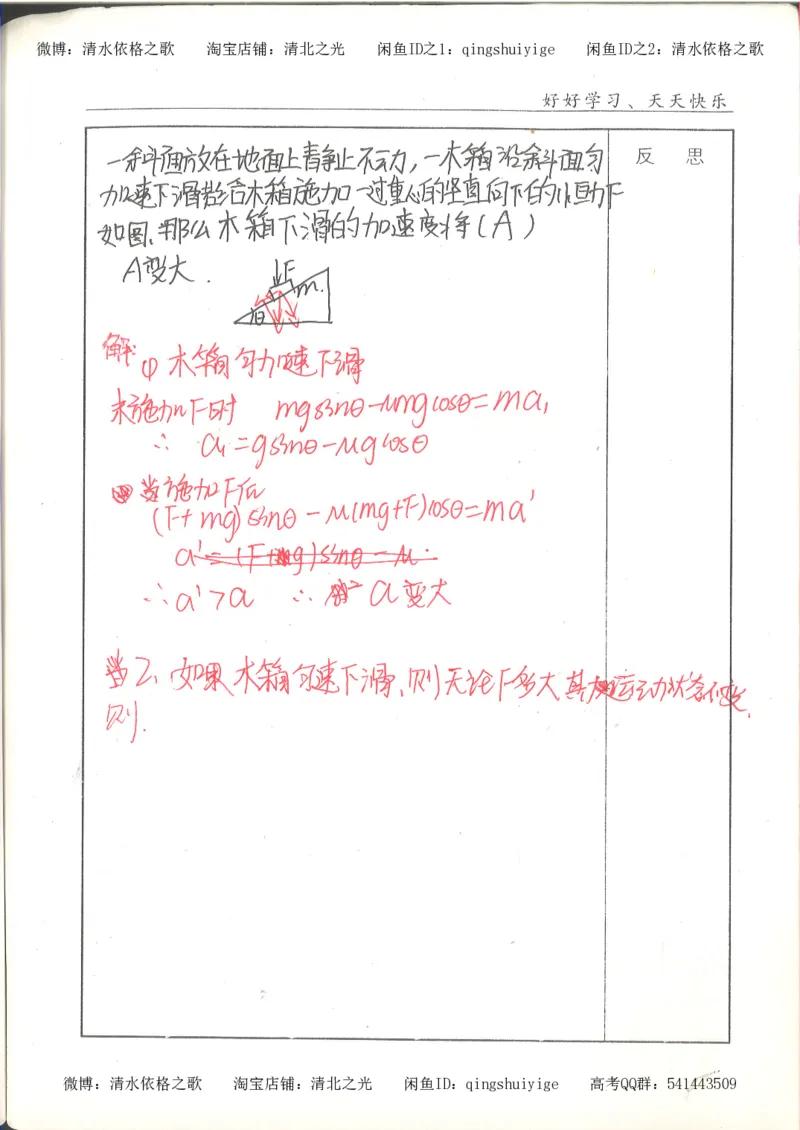 微博：清水依格之歌 淘宝店铺：清北之光 闲鱼ID之1：qingshuiyige 闲鱼ID之2：清水依格之歌
好好学习、天天快乐
反 思
一斜面放在地面上静止不动，一木箱沿斜面匀
加速下滑若给木箱施加一过重心的竖直向下的恒力F
如图，那么木箱下滑的加速度将(A)
A变大．
F
m
θ
解：
① 木箱匀加速下滑
未施加F时 mgsinθ-μmgcosθ=ma₁
∴ a₁=gsinθ-μgcosθ
当施加F后
(F+mg)sinθ-μ(mg+F)cosθ=ma'
a'=(F+mg)sinθ-μ
∴a'>a ∴ a变大
2、如果木箱匀速下滑，则无论F多大其运动状态不变，
则．
微博：清水依格之歌 淘宝店铺：清北之光 闲鱼ID：qingshuiyige 高考QQ群：541443509